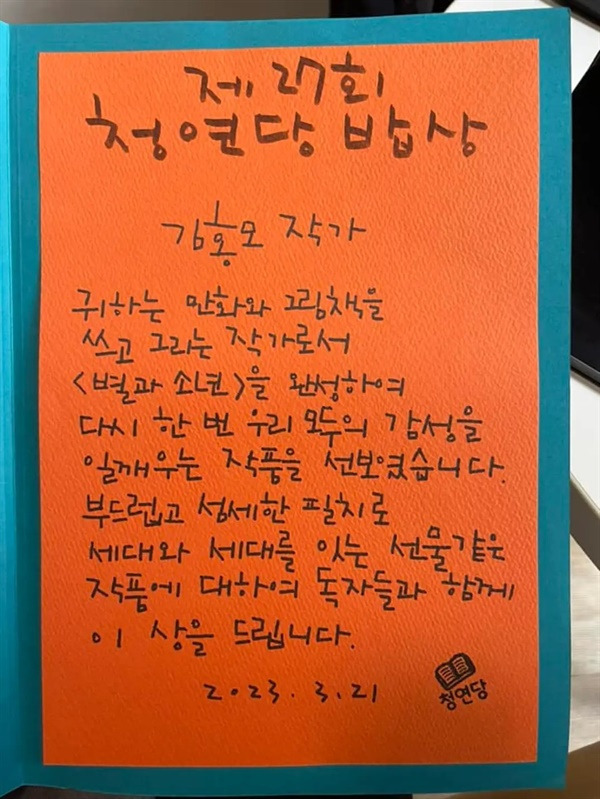 제 27회
청연당 밥상
김홍모 작가
귀하는 만화와 그림책을
쓰고 그리는 작가로서
<별과 소년>을 완성하여
다시 한 번 우리 모두의 감성을
일깨우는 작품을 선보였습니다.
부드럽고 섬세한 필치로
세대와 세대를 잇는 선물같은
작품에 대하여 독자들과 함께
이 상을 드립니다.
2023. 3. 21
청연당